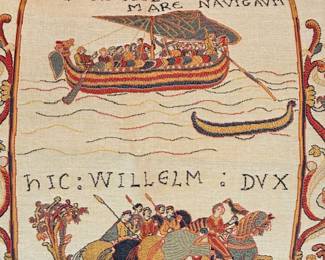 MARE NAVIGAVIT
hIC : WILLELM : DVX